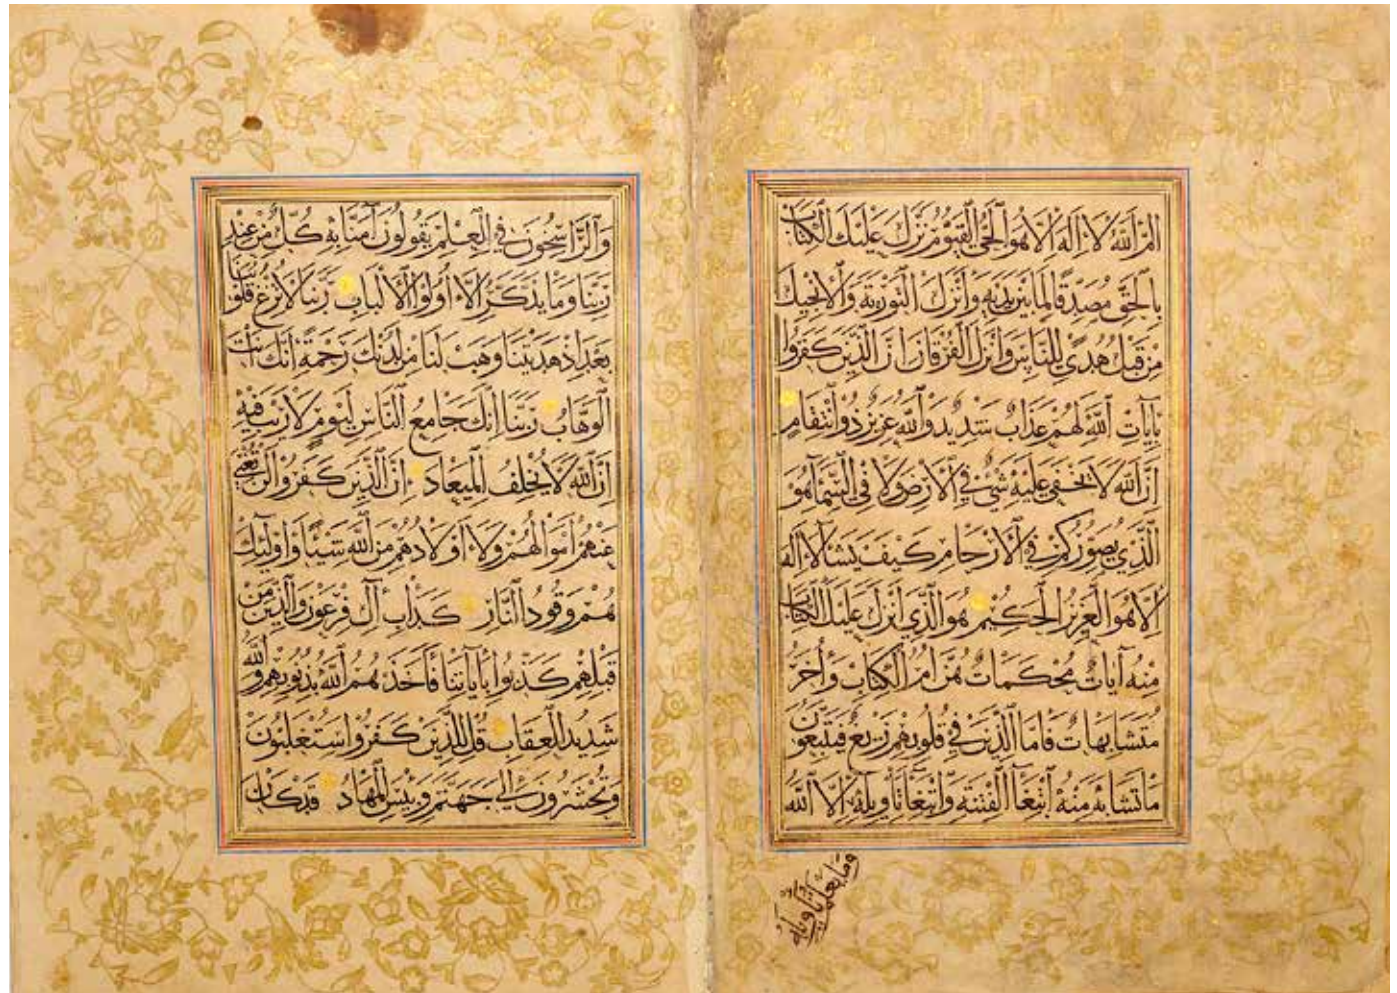 الم اَللّٰهُ لَا اِلٰهَ اِلَّا هُوَ الْحَيُّ الْقَيُّومُ نَزَّلَ عَلَيْكَ الْكِتَابَ
بِالْحَقِّ مُصَدِّقًا لِمَا بَيْنَ يَدَيْهِ وَاَنْزَلَ التَّوْرٰيةَ وَالْاِنْجِيلَ
مِنْ قَبْلُ هُدًى لِلنَّاسِ وَاَنْزَلَ الْفُرْقَانَ اِنَّ الَّذِينَ كَفَرُوا
بِآيَاتِ اللّٰهِ لَهُمْ عَذَابٌ شَدِيدٌ وَاللّٰهُ عَزِيزٌ ذُو انْتِقَامٍ
اِنَّ اللّٰهَ لَا يَخْفٰى عَلَيْهِ شَيْءٌ فِي الْاَرْضِ وَلَا فِي السَّمَآ هُوَ
الَّذِي يُصَوِّرُكُمْ فِي الْاَرْحَامِ كَيْفَ يَشَآ لَا اِلٰهَ
اِلَّا هُوَ الْعَزِيزُ الْحَكِيمُ هُوَ الَّذِي اَنْزَلَ عَلَيْكَ الْكِتَابَ
مِنْهُ آيَاتٌ مُحْكَمَاتٌ هُنَّ اُمُّ الْكِتَابِ وَأُخَرُ
مُتَشَابِهَاتٌ فَاَمَّا الَّذِينَ فِي قُلُوبِهِمْ زَيْغٌ فَيَتَّبِعُونَ
مَا تَشَابَهَ مِنْهُ ابْتِغَآ الْفِتْنَةِ وَابْتِغَآ تَأْوِيلِهِ اِلَّا اللّٰهُ
وَمَا يَعْلَمُ تَأْوِيلَهُ
وَالرَّاسِخُونَ فِي الْعِلْمِ يَقُولُونَ آمَنَّا بِهِ كُلٌّ مِنْ عِنْدِ
رَبِّنَا وَمَا يَذَّكَّرُ اِلَّا اُولُوا الْاَلْبَابِ رَبَّنَا لَا تُزِغْ قُلُوبَنَا
بَعْدَ اِذْ هَدَيْتَنَا وَهَبْ لَنَا مِنْ لَدُنْكَ رَحْمَةً اِنَّكَ اَنْتَ
الْوَهَّابُ رَبَّنَا اِنَّكَ جَامِعُ النَّاسِ لِيَوْمٍ لَا رَيْبَ فِيهِ
اِنَّ اللّٰهَ لَا يُخْلِفُ الْمِيعَادَ اِنَّ الَّذِينَ كَفَرُوا لَنْ تُغْنِيَ
عَنْهُمْ اَمْوَالُهُمْ وَلَا اَوْلَادُهُمْ مِنَ اللّٰهِ شَيْئًا وَاُولٰئِكَ
هُمْ وَقُودُ النَّارِ كَدَأْبِ آلِ فِرْعَوْنَ وَالَّذِينَ مِنْ
قَبْلِهِمْ كَذَّبُوا بِآيَاتِنَا فَاَخَذَهُمُ اللّٰهُ بِذُنُوبِهِمْ وَاللّٰهُ
شَدِيدُ الْعِقَابِ قُلْ لِلَّذِينَ كَفَرُوا سَتُغْلَبُونَ
وَتُحْشَرُونَ اِلٰى جَهَنَّمَ وَبِئْسَ الْمِهَادُ قَدْ كَانَ